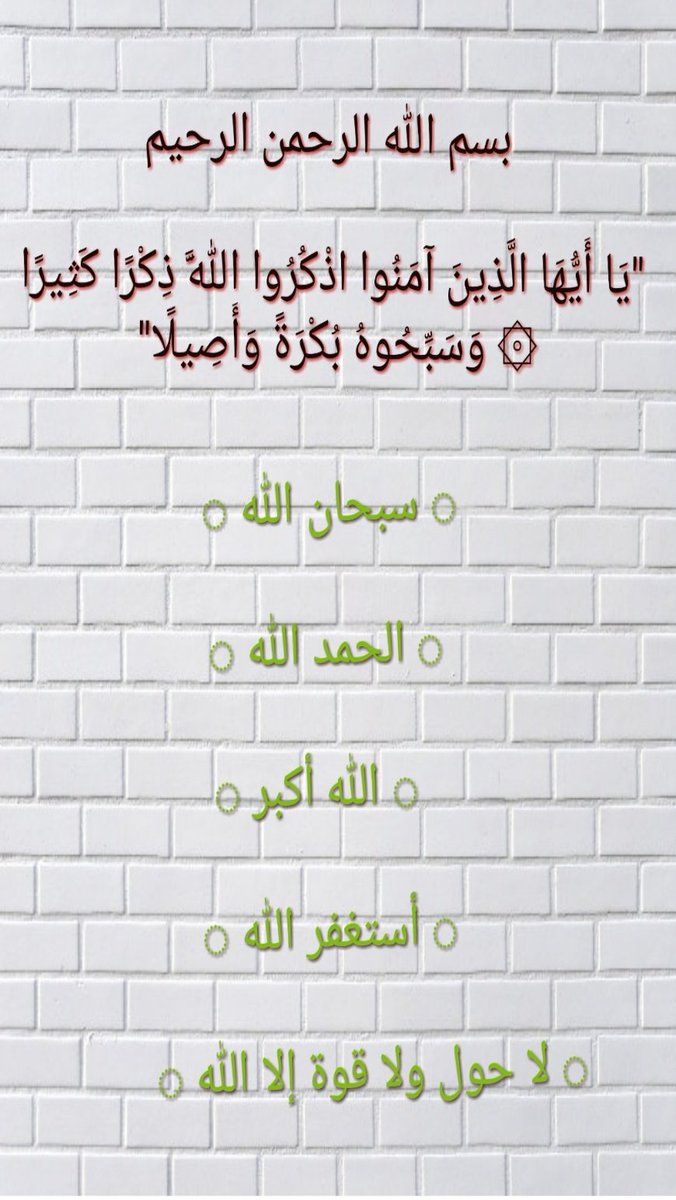 بسم الله الرحمن الرحيم
"يَا أَيُّهَا الَّذِينَ آمَنُوا اذْكُرُوا اللهَّ ذِكْرًا كَثِيرًا
۞ وَسَبِّحُوهُ بُكْرَةً وَأَصِيلًا"
سبحان الله
الحمد الله
الله أكبر
أستغفر الله
لا حول ولا قوة إلا الله